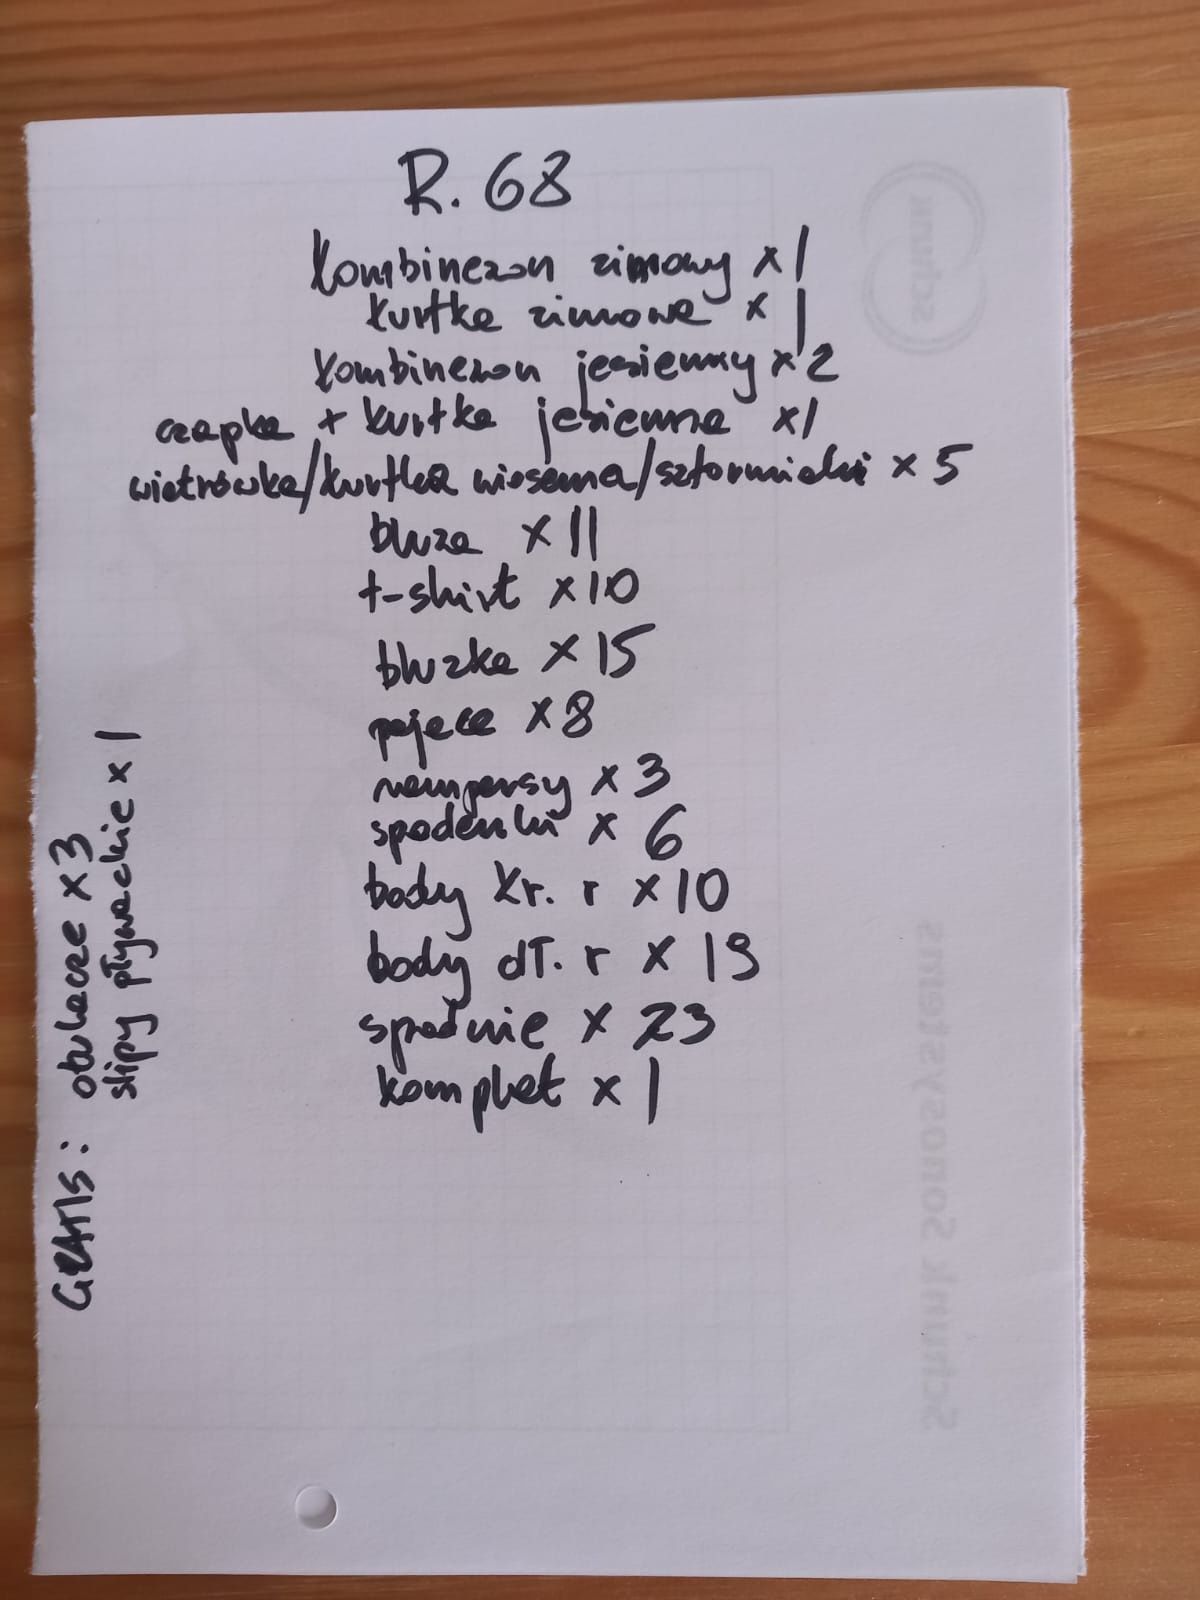 R. 68
kombinezon zimowy x 1
kurtka zimowa x 1
kombinezon jesienny x 2
czapka + kurtka jesienna x1
wiatrówka/kurtka wiosenna/sztormiaki x 5
bluza x 11
t-shirt x 10
bluzka x 15
pajace x 8
rampersy x 3
spodenki x 6
body kr. r x 10
body dł. r x 19
spodnie x 23
komplet x 1
GRATIS: otulacze x 3
slipy pływackie x 1
schunk
Schunk Sonosystems